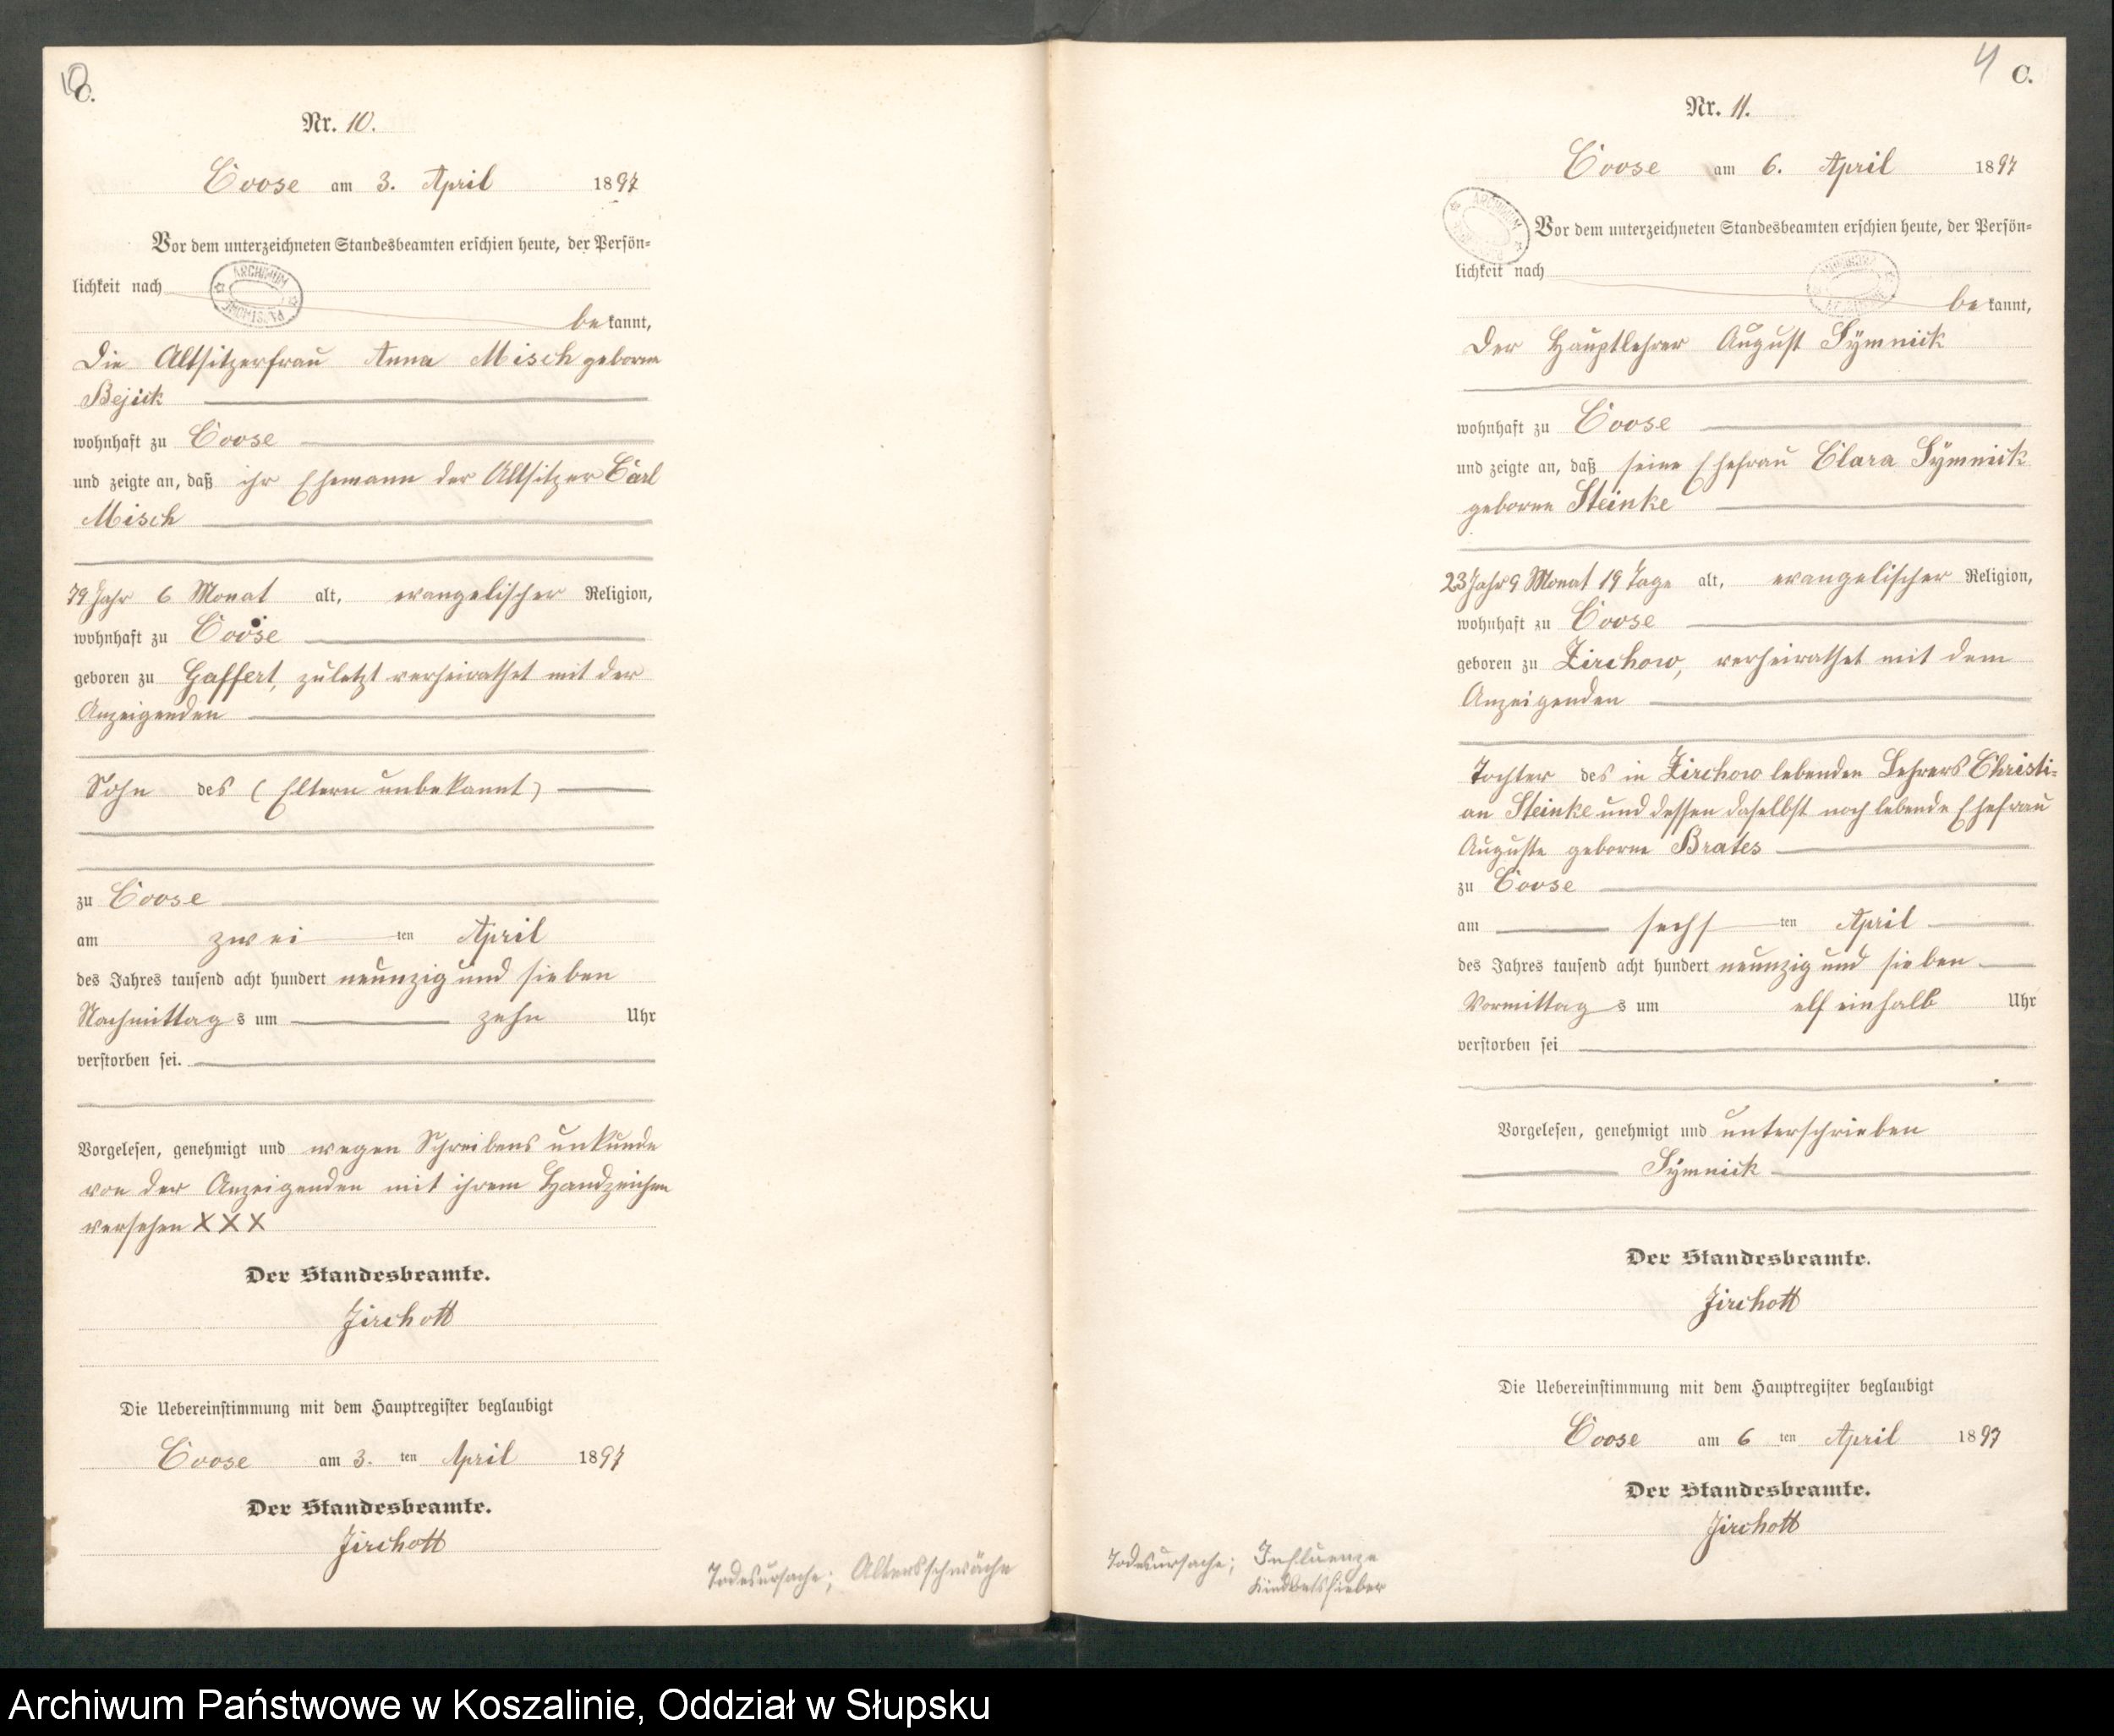 C.
Nr. 10.
Coose am 3. April 1897
Vor dem unterzeichneten Standesbeamten erschien heute, der Persön-
lichkeit nach
bekannt,
Die Altsitzerfrau Anna Misch geborne
Bejick
wohnhaft zu Coose
und zeigte an, daß ihr Ehemann der Altsitzer Carl
Misch
79 Jahr 6 Monat alt, evangelischer Religion,
wohnhaft zu Coose
geboren zu Gaffert, zuletzt verheirathet mit der
Anzeigenden
Sohn des (Eltern unbekannt)
zu Coose
am zweiten April
des Jahres tausend acht hundert neunzig und sieben
Nachmittags um zehn Uhr
verstorben sei.
Vorgelesen, genehmigt und wegen Schreibens unkunde
von der Anzeigenden mit ihrem Handzeichen
versehen XXX
Der Standesbeamte.
Zirchott
Die Uebereinstimmung mit dem Hauptregister beglaubigt
Coose am 3. ten April 1897
Der Standesbeamte.
Zirchott
Todesursache; Altersschwäche
4 C.
Nr. 11.
Coose am 6. April 1897
Vor dem unterzeichneten Standesbeamten erschien heute, der Persön-
lichkeit nach
bekannt,
Der Hauptlehrer August Symnick
wohnhaft zu Coose
und zeigte an, daß seine Ehefrau Clara Symnick
geborne Steinke
23 Jahr 9 Monat 19 Tage alt, evangelischer Religion,
wohnhaft zu Coose
geboren zu Zirchow, verheirathet mit dem
Anzeigenden
Tochter des in Zirchow lebenden Lehrers Christi-
an Steinke und dessen daselbst noch lebende Ehefrau
Auguste geborne Brates
zu Coose
am sechsten April
des Jahres tausend acht hundert neunzig und sieben
Vormittags um elf einhalb Uhr
verstorben sei
Vorgelesen, genehmigt und unterschrieben
Symnick
Der Standesbeamte.
Zirchott
Die Uebereinstimmung mit dem Hauptregister beglaubigt
Coose am 6 ten April 1897
Der Standesbeamte.
Zirchott
Todesursache; Influenza
Kindbettfieber
Archiwum Państwowe w Koszalinie, Oddział w Słupsku